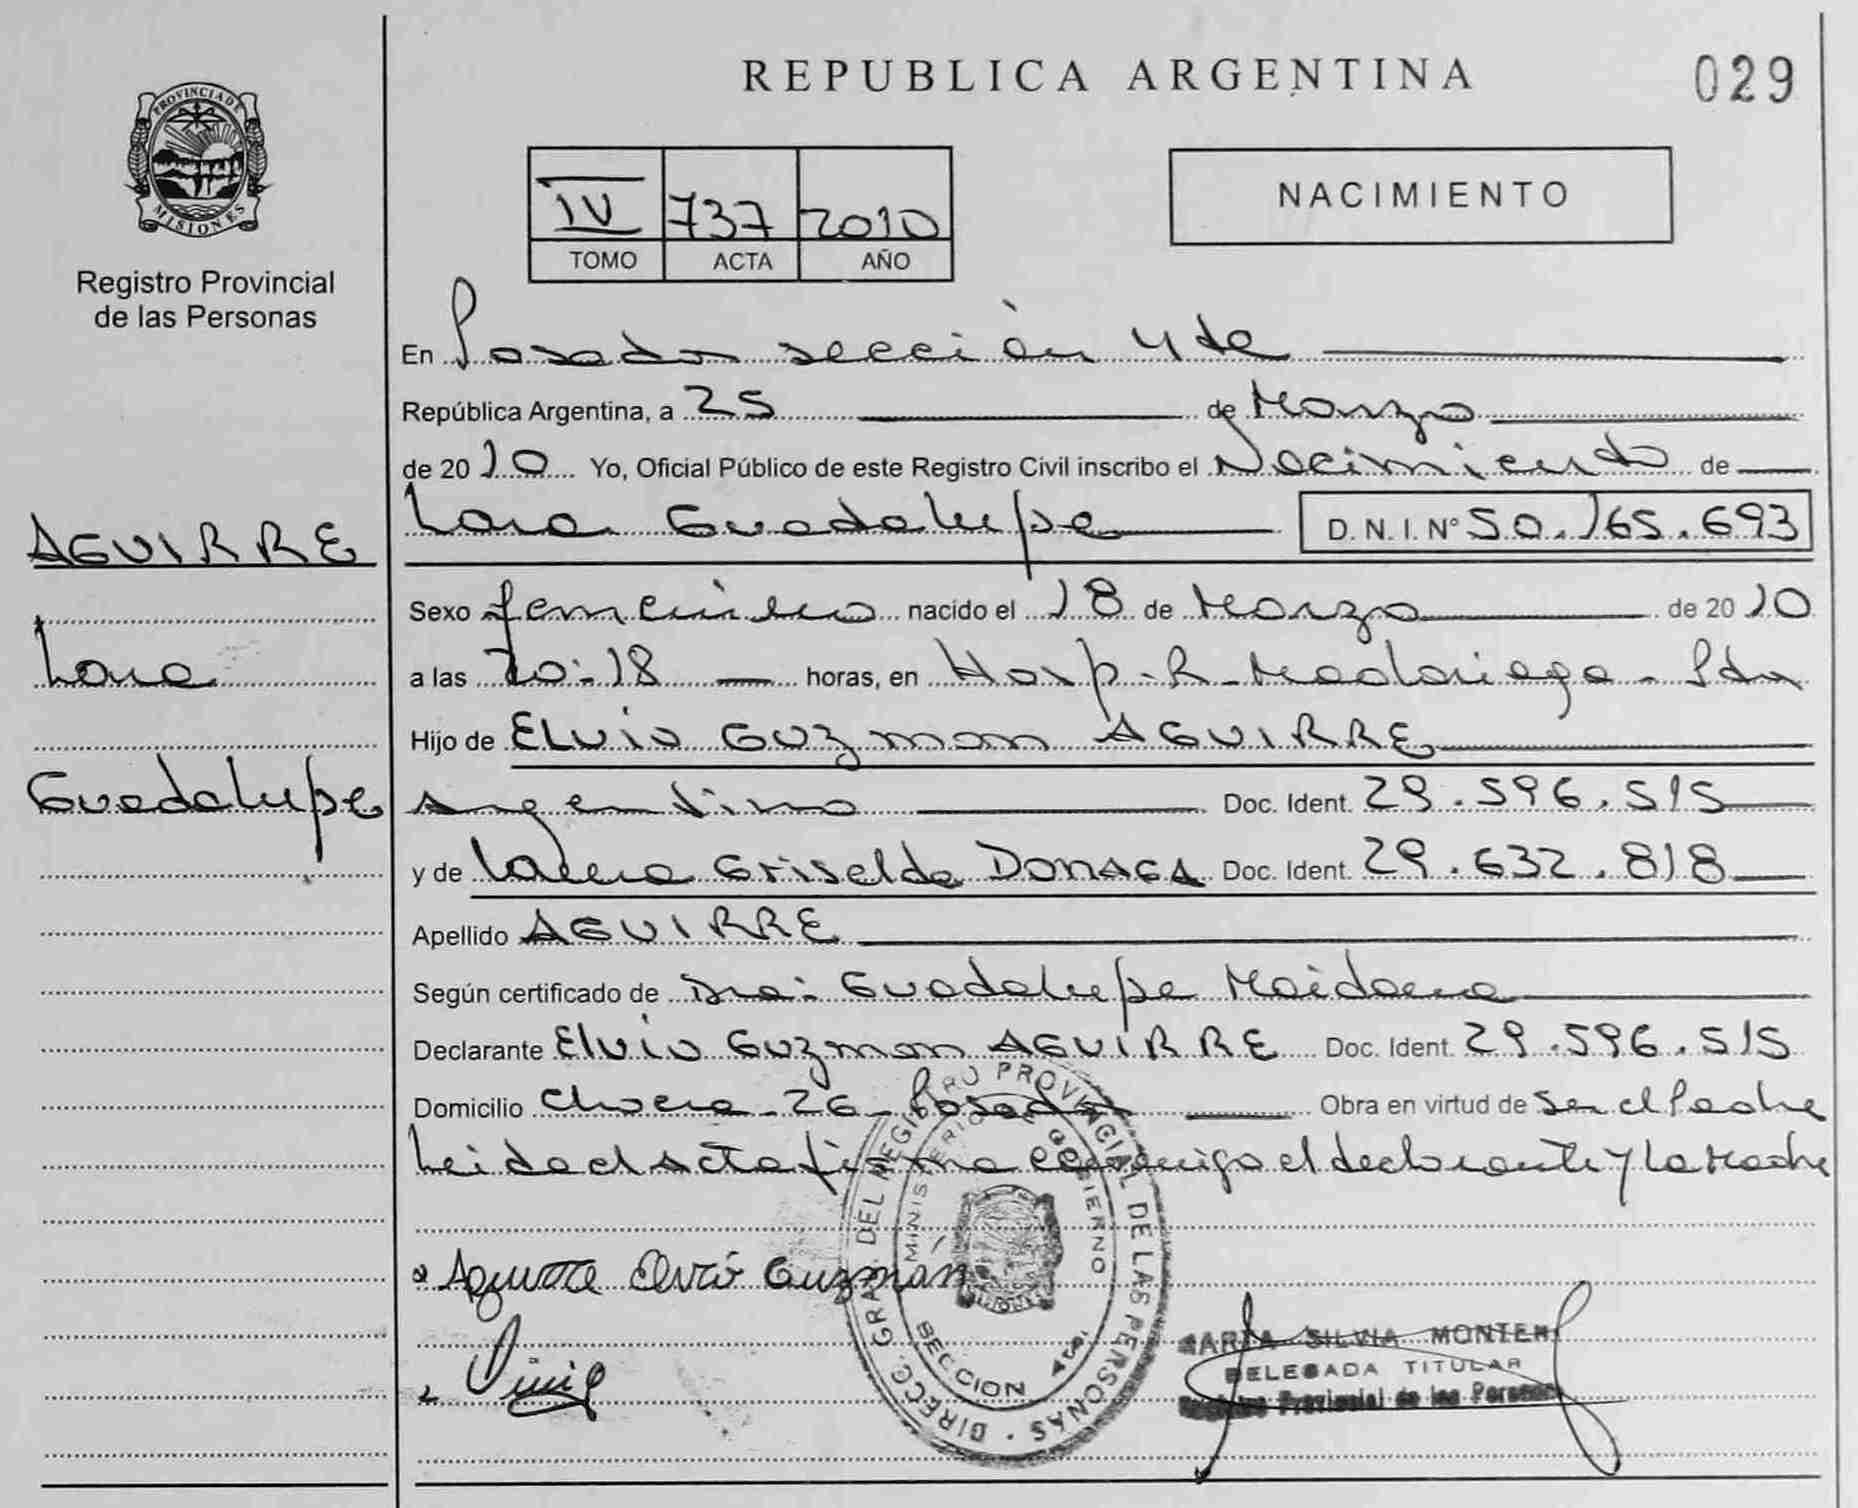 REPUBLICA ARGENTINA
029
PROVINCIA DE MISIONES
Registro Provincial
de las Personas
IV 737 2010
TOMO ACTA AÑO
NACIMIENTO
AGUIRRE
Lara
Guadalupe
En Posadas sección 4ta
República Argentina, a 25 de Marzo
de 2010 Yo, Oficial Público de este Registro Civil inscribo el Nacimiento de
Lara Guadalupe D. N. I. N° 50.165.693
Sexo femenino nacido el 18 de Marzo de 2010
a las 20:18 horas, en Hosp. R. Madariaga - Pdas
Hijo de ELVIO GUZMAN AGUIRRE
Argentino Doc. Ident. 29.596.515
y de Griselda DONAGA Doc. Ident. 29.632.818
Apellido AGUIRRE
Según certificado de Dra: Guadalupe Maidana
Declarante Elvio Guzman AGUIRRE Doc. Ident. 29.596.515
Domicilio Chacra 26 - Posadas Obra en virtud de ser el Padre
Leida el acta firma conmigo el declarante y la Madre
Aguirre Elvio Guzmán
DIRECC. GRAL. DEL REGISTRO PROVINCIAL DE LAS PERSONAS
MINISTERIO DE GOBIERNO
SECCION
SILVIA
DELEGADA TITULAR
Registro Provincial de las Personas